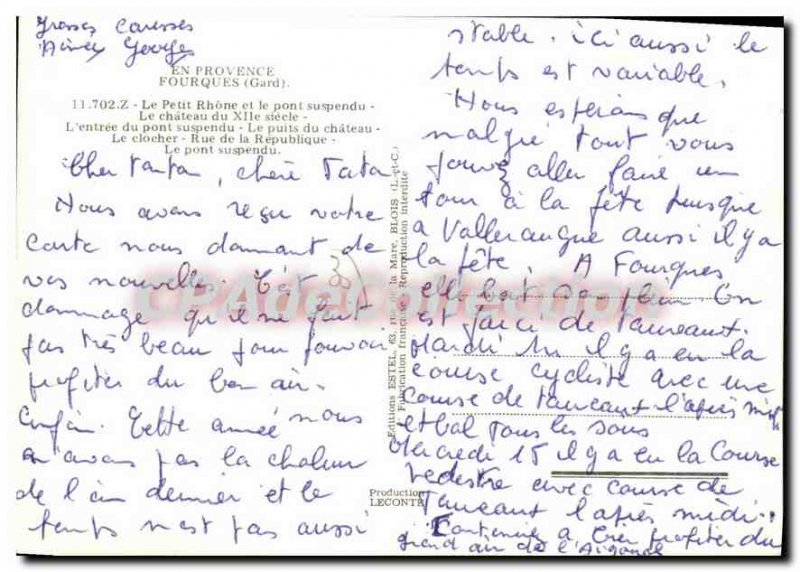 Grosses Caresses
Aimée Georges
EN PROVENCE
FOURQUES (Gard).
11.702.Z - Le Petit Rhône et le pont suspendu -
Le château du XIIe siècle -
L'entrée du pont suspendu - Le puits du château -
Le clocher - Rue de la République -
Le pont suspendu.
Cher tonton, chère Tata
Nous avons reçu votre
carte nous donnant de
vos nouvelles. C'est
dommage qu'il ne fait
pas très beau pour pouvoir
profiter du bon air.
Enfin. Cette année nous
n'avons pas la chaleur
de l'an dernier et le
temps n'est pas aussi
stable. ici aussi le
temps est variable.
Nous espérons que
malgré tout vous
pouvez aller faire un
tour à la fête puisque
a Valleraugue aussi il y a
la fête. A Fourques
elle bat son plein. On
est farci de taureaux.
Mardi 14 il y a eu la
course cycliste avec une
course de taureaux l'après midi
et bal tous les soirs
Mercredi 15 il y a eu la Course
pedestre avec course de
taureaux l'après midi.
Continuer a bien profiter du
grand air de l'Aigoual
Editions ESTEL, 63, rue de la Mare, BLOIS (L.-et-C.)
Fabrication française - Reproduction interdite
Production
LECONTE
CPAdeCollection